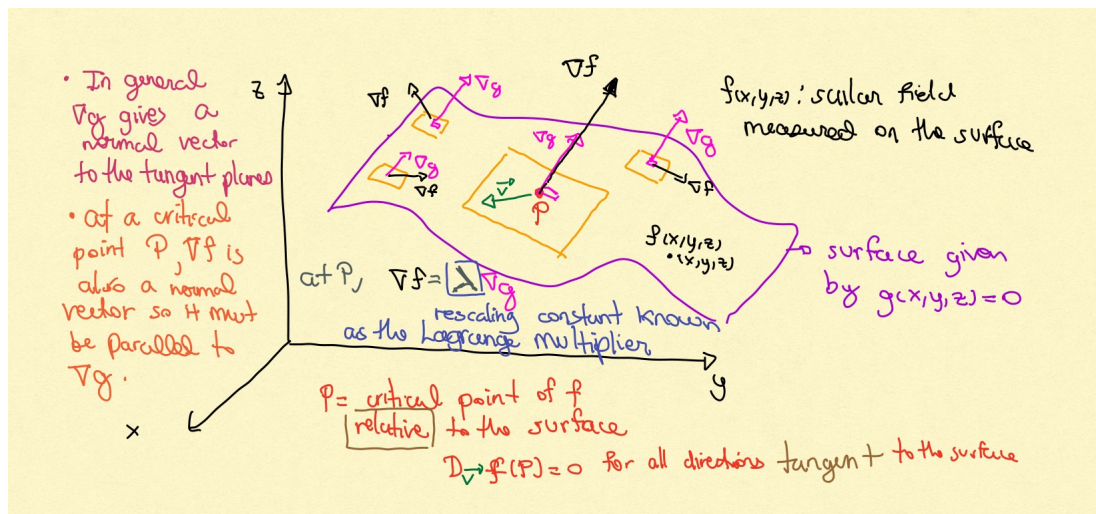 • In general
∇g gives a
normal vector
to the tangent planes
• at a critical
point P, ∇f is
also a normal
vector so it must
be parallel to
∇g.
z
∇f
∇g
∇g
∇f
∇f
∇g
v→
P
∇g
∇f
∇g
∇f
f(x,y,z): scalar field
measured on the surface
f(x,y,z)
•(x,y,z)
surface given
by g(x,y,z)=0
at P, ∇f = λ∇g
rescaling constant known
as the Lagrange multiplier
y
x
P= critical point of f
relative to the surface
D_v→ f(P) = 0 for all directions tangent to the surface